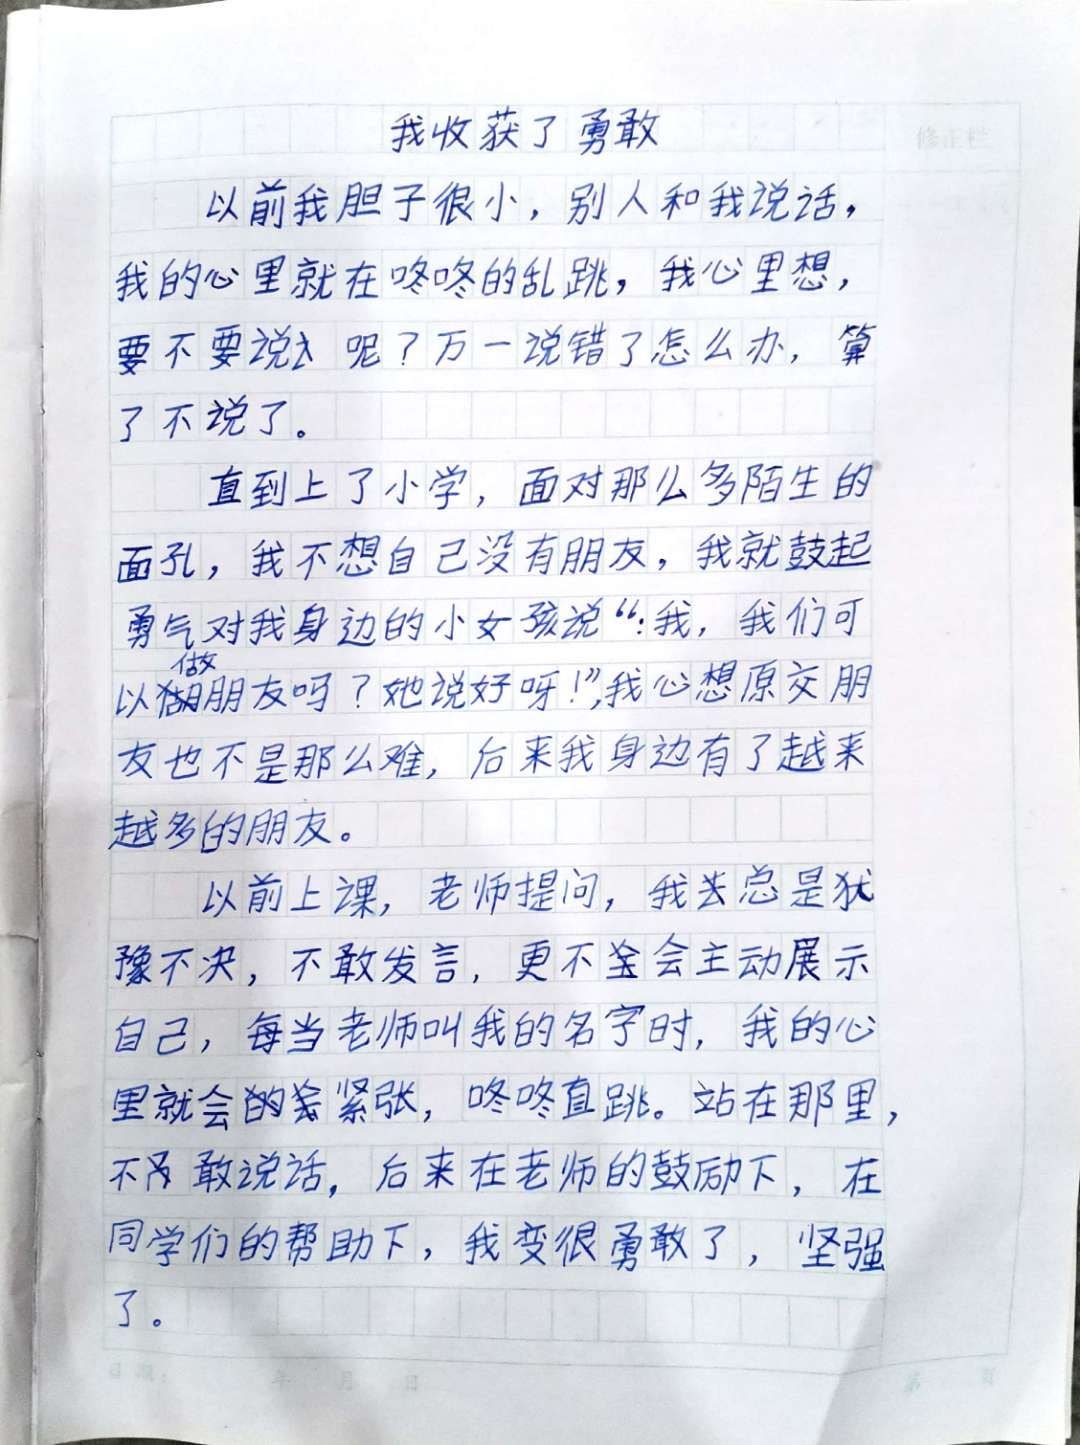 我收获了勇敢
修正栏
以前我胆子很小，别人和我说话，
我的心里就在咚咚的乱跳，我心里想，
要不要说呢？万一说错了怎么办，算
了不说了。
直到上了小学，面对那么多陌生的
面孔，我不想自己没有朋友，我就鼓起
勇气对我身边的小女孩说“：我，我们可
做
以朋友吗？她说好呀！”，我心想原交朋
友也不是那么难，后来我身边有了越来
越多的朋友。
以前上课，老师提问，我总是犹
豫不决，不敢发言，更不会主动展示
自己，每当老师叫我的名字时，我的心
里就会紧张，咚咚直跳。站在那里，
不敢说话，后来在老师的鼓励下，在
同学们的帮助下，我变很勇敢了，坚强
了。
日期： 年 月 日 第 页